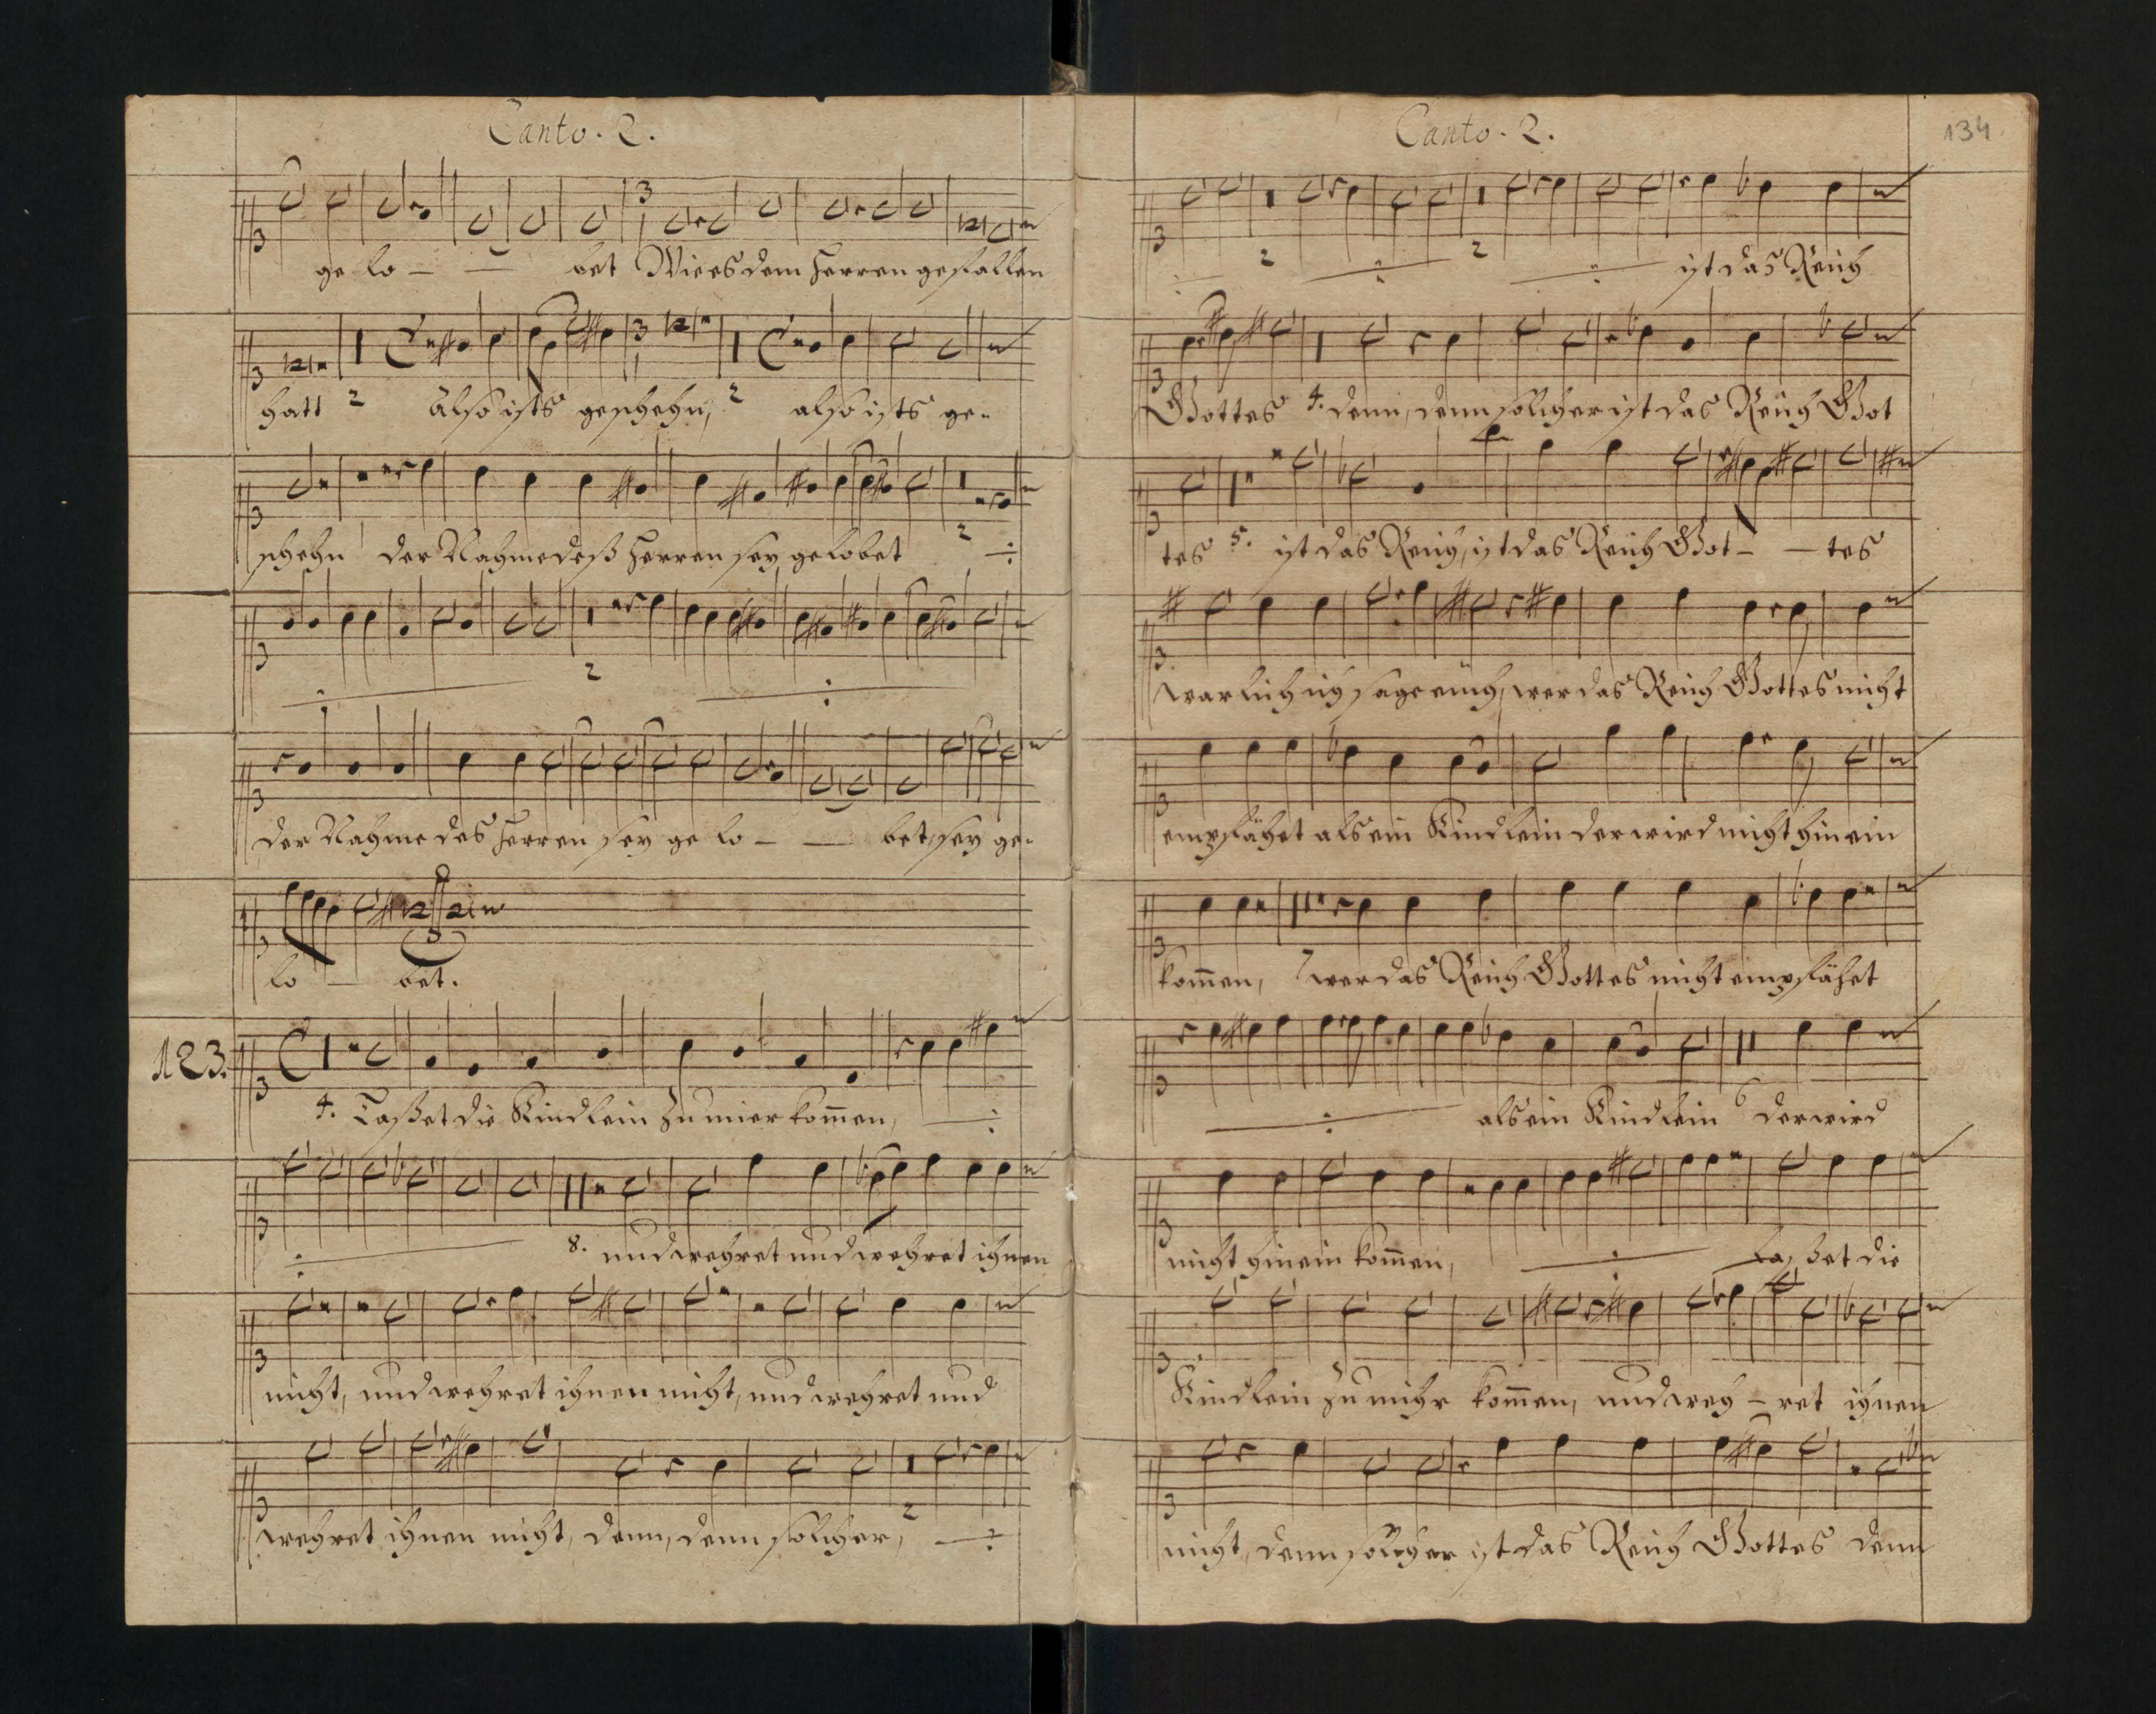 Canto. 2.
ge lo - - bet Wie es dem Herren gefallen
hatt 2 also ists geschehn, 2 also ists ge-
schehn der Nahme deß Herren sey gelobet 2 ÷
2
der Nahme des Herren sey ge lo - - bet, sey ge-
lo - bet.
123.
4. Laßet die Kindlein zu mier kom̄en,
8. und wehret und wehret ihnen
nicht, und wehret ihnen nicht, und wehret und
wehret ihnen nicht, denn, denn solcher, 2
Canto. 2.
134
2 2 ist das Reich
Gottes 4. denn, denn solcher ist das Reich Got
tes 5. ist das Reich, ist das Reich Got - - tes
warlich ich sage euch, wer das Reich Gottes nicht
empfähet als ein Kindlein der wird nicht hinein
kom̄en, 7 wer das Reich Gottes nicht empfähet
als ein Kindlein 6 der wird
nicht hinein kom̄en, Laßet die
Kindlein zu mihr kom̄en, und weh - ret ihnen
nicht, denn solcher ist das Reich Gottes denn